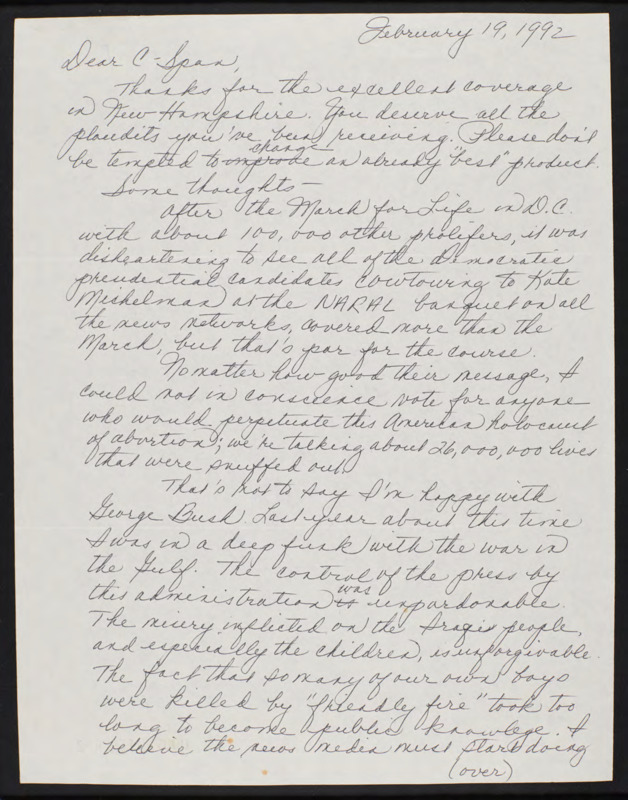 February 19, 1992
Dear C-Span,
Thanks for the excellent coverage
in New Hampshire. You deserve all the
plaudits you've been receiving. Please don't
change
be tempted to improve an already "best" product.
Some thoughts —
After the March for Life in D.C.
with about 100,000 other prolifers, it was
disheartening to see all of the Democratic
presidential candidates cowtowing to Kate
Mishelman at the NARAL banquet on all
the news networks, covered more than the
March, but that's par for the course.
No matter how good their message, I
could not in conscience vote for anyone
who would perpetuate this American holocaust
of abortion; we're talking about 26,000,000 lives
that were snuffed out.
That's not to say I'm happy with
George Bush. Last year about this time
I was in a deep funk with the war in
the Gulf. The control of the press by
was
this administration is unpardonable.
The misery inflicted on the Iraqi people,
and especially the children, is unforgivable.
The fact that so many of our own boys
were killed by "friendly fire" took too
long to become public knowlege. I
believe the news media must start doing
(over)